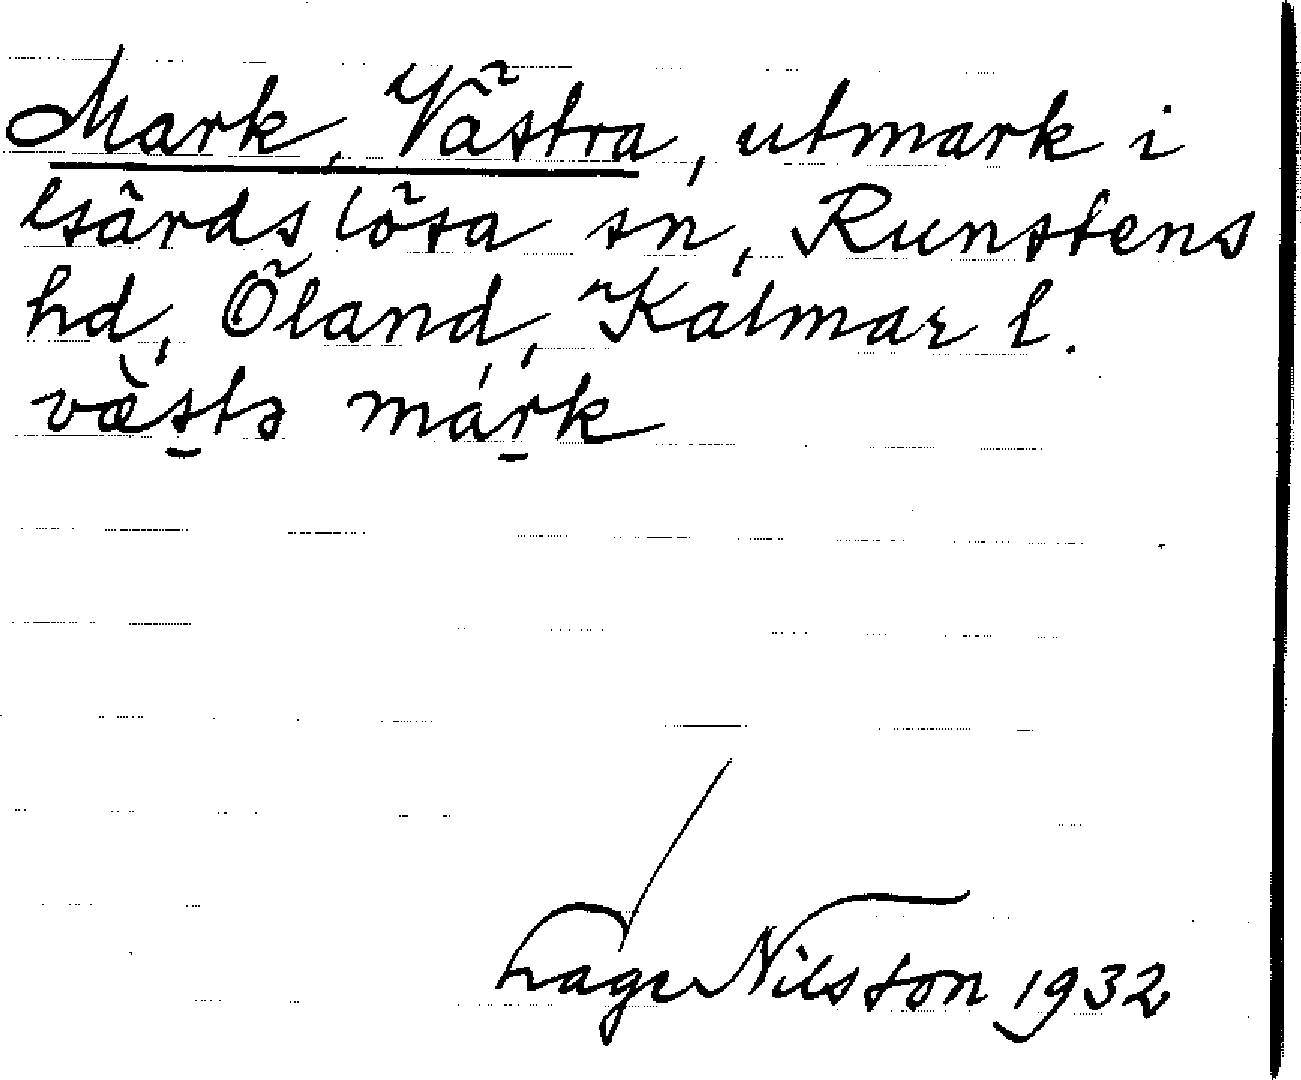 Mark, Västra, utmark i
Gärdslösa sn, Runstens
hd, Öland, Kalmar l.
væ̀stə márk
Lage Nilsson 1932